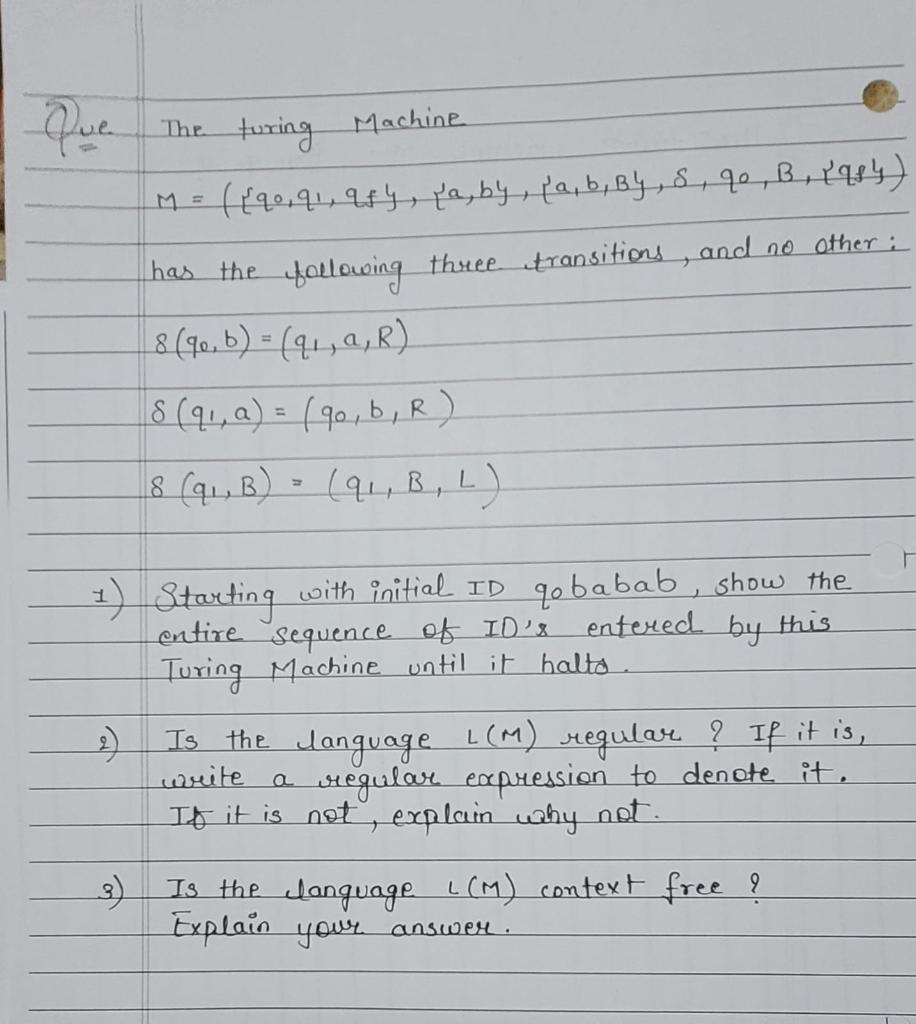 Que The turing Machine
M = ({q0,q1,qf}, {a,b}, {a,b,B}, δ, q0, B, {qf})
has the following three transitions, and no other:
δ(q0,b) = (q1,a,R)
δ(q1,a) = (q0,b,R)
δ(q1,B) = (q1,B,L)
1) Starting with initial ID q0babab, show the
entire sequence of ID's entered by this
Turing Machine until it halts.
2) Is the language L(M) regular? If it is,
write a regular expression to denote it.
If it is not, explain why not.
3) Is the language L(M) context free?
Explain your answer.